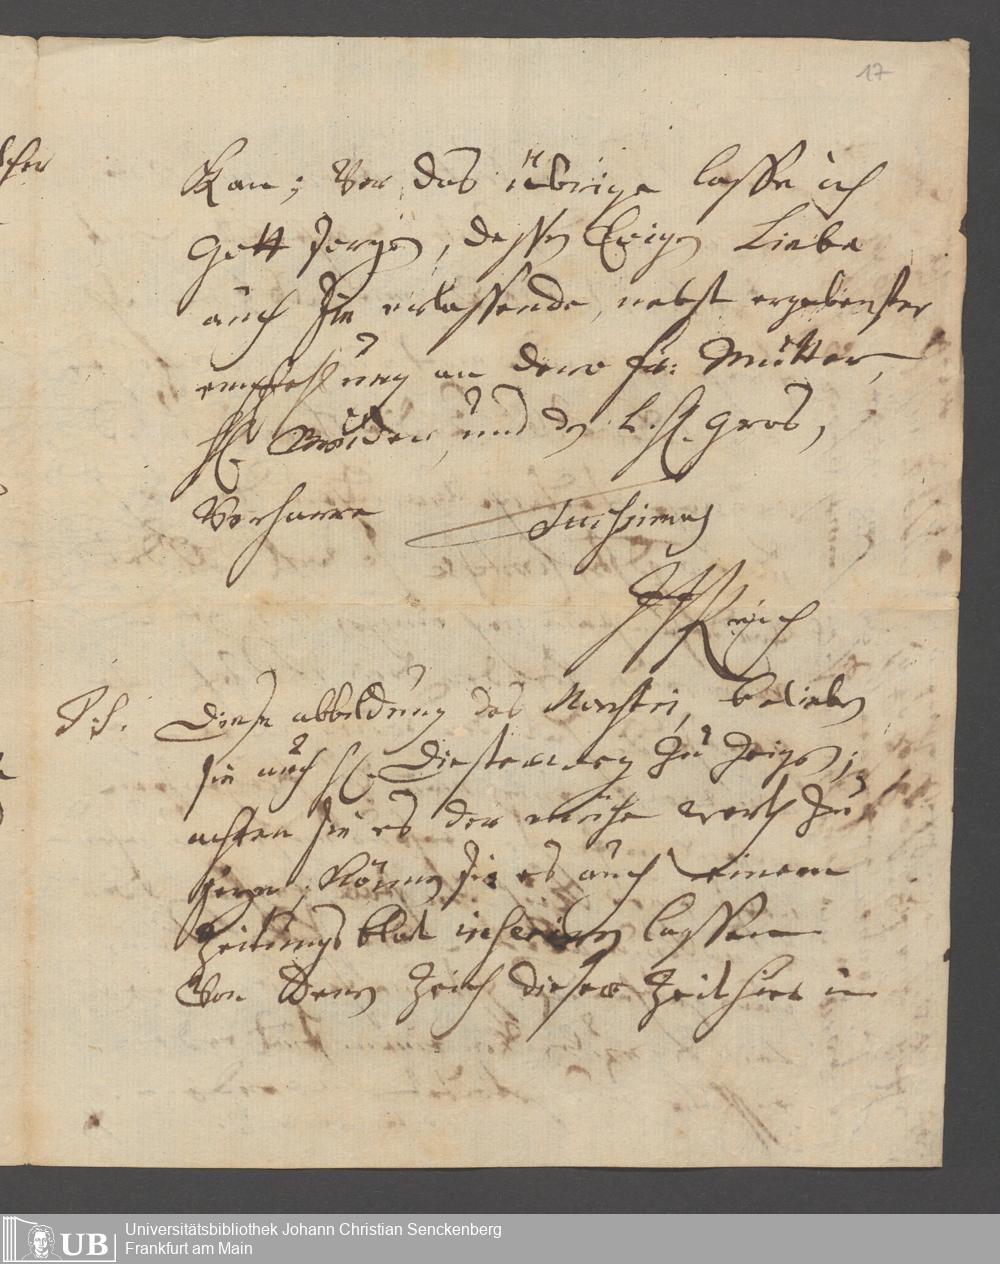 17
Kan; Vor das übrige lasse ich
Gott sorgen, dessen Ewigen Liebe
auch Sie erlassende, nebst ergebenster
empfehlung an dero fr: Mutter,
H. Bruder, und den L. H. Gros,
Verharre
Reich
P. S. Diese abbildung des Monstri, belieben
sie auch H. Diesterweg zu zeigen;
achten sie es der mühe werth zu
seyn, können sie es auch einem
Zeitungs blat inseriren lassen
Von dem Zeich dieser Zeit hier in
Universitätsbibliothek Johann Christian Senckenberg
Frankfurt am Main
UB